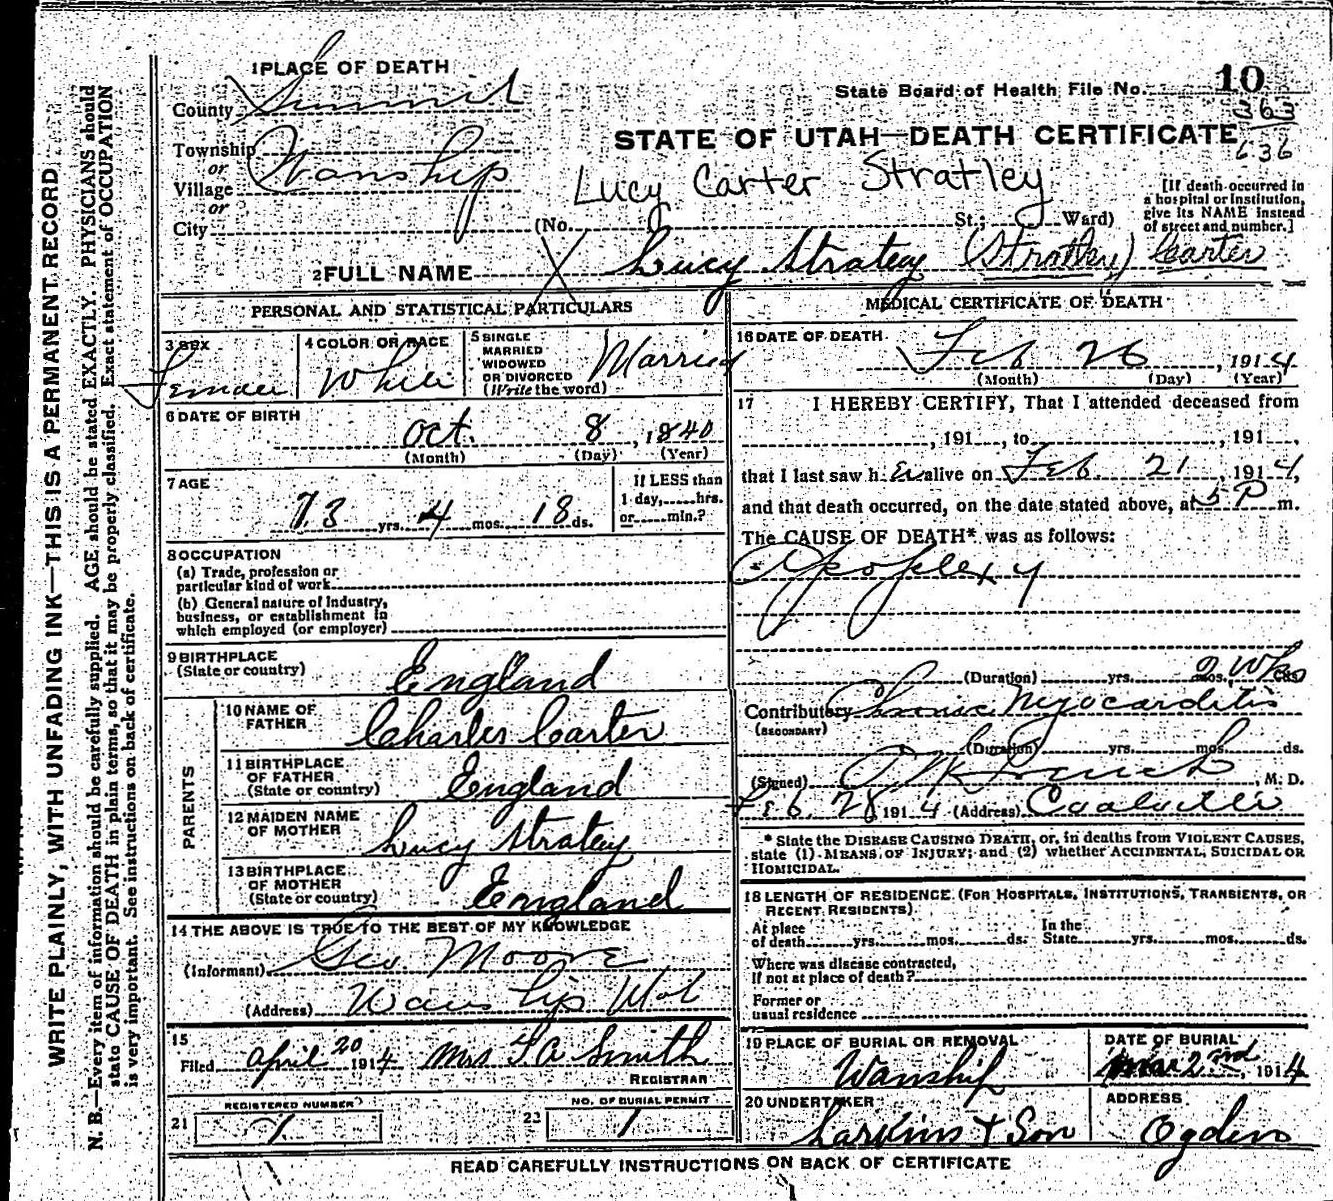 1 PLACE OF DEATH
County Summit
Township
or
Village Wanship
or
City
State Board of Health File No. 10
363
636
STATE OF UTAH—DEATH CERTIFICATE
Lucy Carter Stratley
(No. St.; Ward)
[If death occurred in
a hospital or institution,
give its NAME instead
of street and number.]
2 FULL NAME Lucy Stratey (Stratley) Carter
PERSONAL AND STATISTICAL PARTICULARS
3 SEX
Female
4 COLOR OR RACE
White
5 SINGLE
MARRIED
WIDOWED
OR DIVORCED
(Write the word)
Married
6 DATE OF BIRTH
Oct. 8, 1840
(Month) (Day) (Year)
7 AGE
73 yrs. 4 mos. 18 ds.
If LESS than
1 day, hrs.
or min.?
8 OCCUPATION
(a) Trade, profession or
particular kind of work
(b) General nature of Industry,
business, or establishment in
which employed (or employer)
9 BIRTHPLACE
(State or country) England
PARENTS
10 NAME OF
FATHER Charles Carter
11 BIRTHPLACE
OF FATHER
(State or country) England
12 MAIDEN NAME
OF MOTHER Lucy Stratey
13 BIRTHPLACE
OF MOTHER
(State or country) England
14 THE ABOVE IS TRUE TO THE BEST OF MY KNOWLEDGE
(Informant) Geo Moore
(Address) Wanship Utah
15
Filed April 20 1914 Mrs F A Smith
REGISTRAR
REGISTERED NUMBER
21 1
NO. OF BURIAL PERMIT
22 1
MEDICAL CERTIFICATE OF DEATH
16 DATE OF DEATH
Feb 26, 1914
(Month) (Day) (Year)
17 I HEREBY CERTIFY, That I attended deceased from
, 191 , to , 191 ,
that I last saw h er alive on Feb. 21 1914,
and that death occurred, on the date stated above, at 5 P m.
The CAUSE OF DEATH* was as follows:
Apoplexy
(Duration) yrs. mos. 2 wks ds.
Contributory Chronic Myocarditis
(SECONDARY)
(Duration) yrs. mos. ds.
(Signed) , M. D.
Feb. 28, 1914 (Address) Coalville
* State the DISEASE CAUSING DEATH, or, in deaths from VIOLENT CAUSES,
state (1) MEANS OF INJURY; and (2) whether ACCIDENTAL, SUICIDAL OR
HOMICIDAL.
18 LENGTH OF RESIDENCE (FOR HOSPITALS, INSTITUTIONS, TRANSIENTS, OR
RECENT RESIDENTS)
At place
of death yrs. mos. ds.
In the
State yrs. mos. ds.
Where was disease contracted,
If not at place of death?
Former or
usual residence
19 PLACE OF BURIAL OR REMOVAL
Wanship
DATE OF BURIAL
Mar 2nd, 1914
20 UNDERTAKER
Larkins & Son
ADDRESS
Ogden
READ CAREFULLY INSTRUCTIONS ON BACK OF CERTIFICATE
WRITE PLAINLY, WITH UNFADING INK—THIS IS A PERMANENT RECORD
N. B.—Every item of information should be carefully supplied. AGE should be stated EXACTLY. PHYSICIANS should
state CAUSE OF DEATH in plain terms, so that it may be properly classified. Exact statement of OCCUPATION
is very important. See instructions on back of certificate.